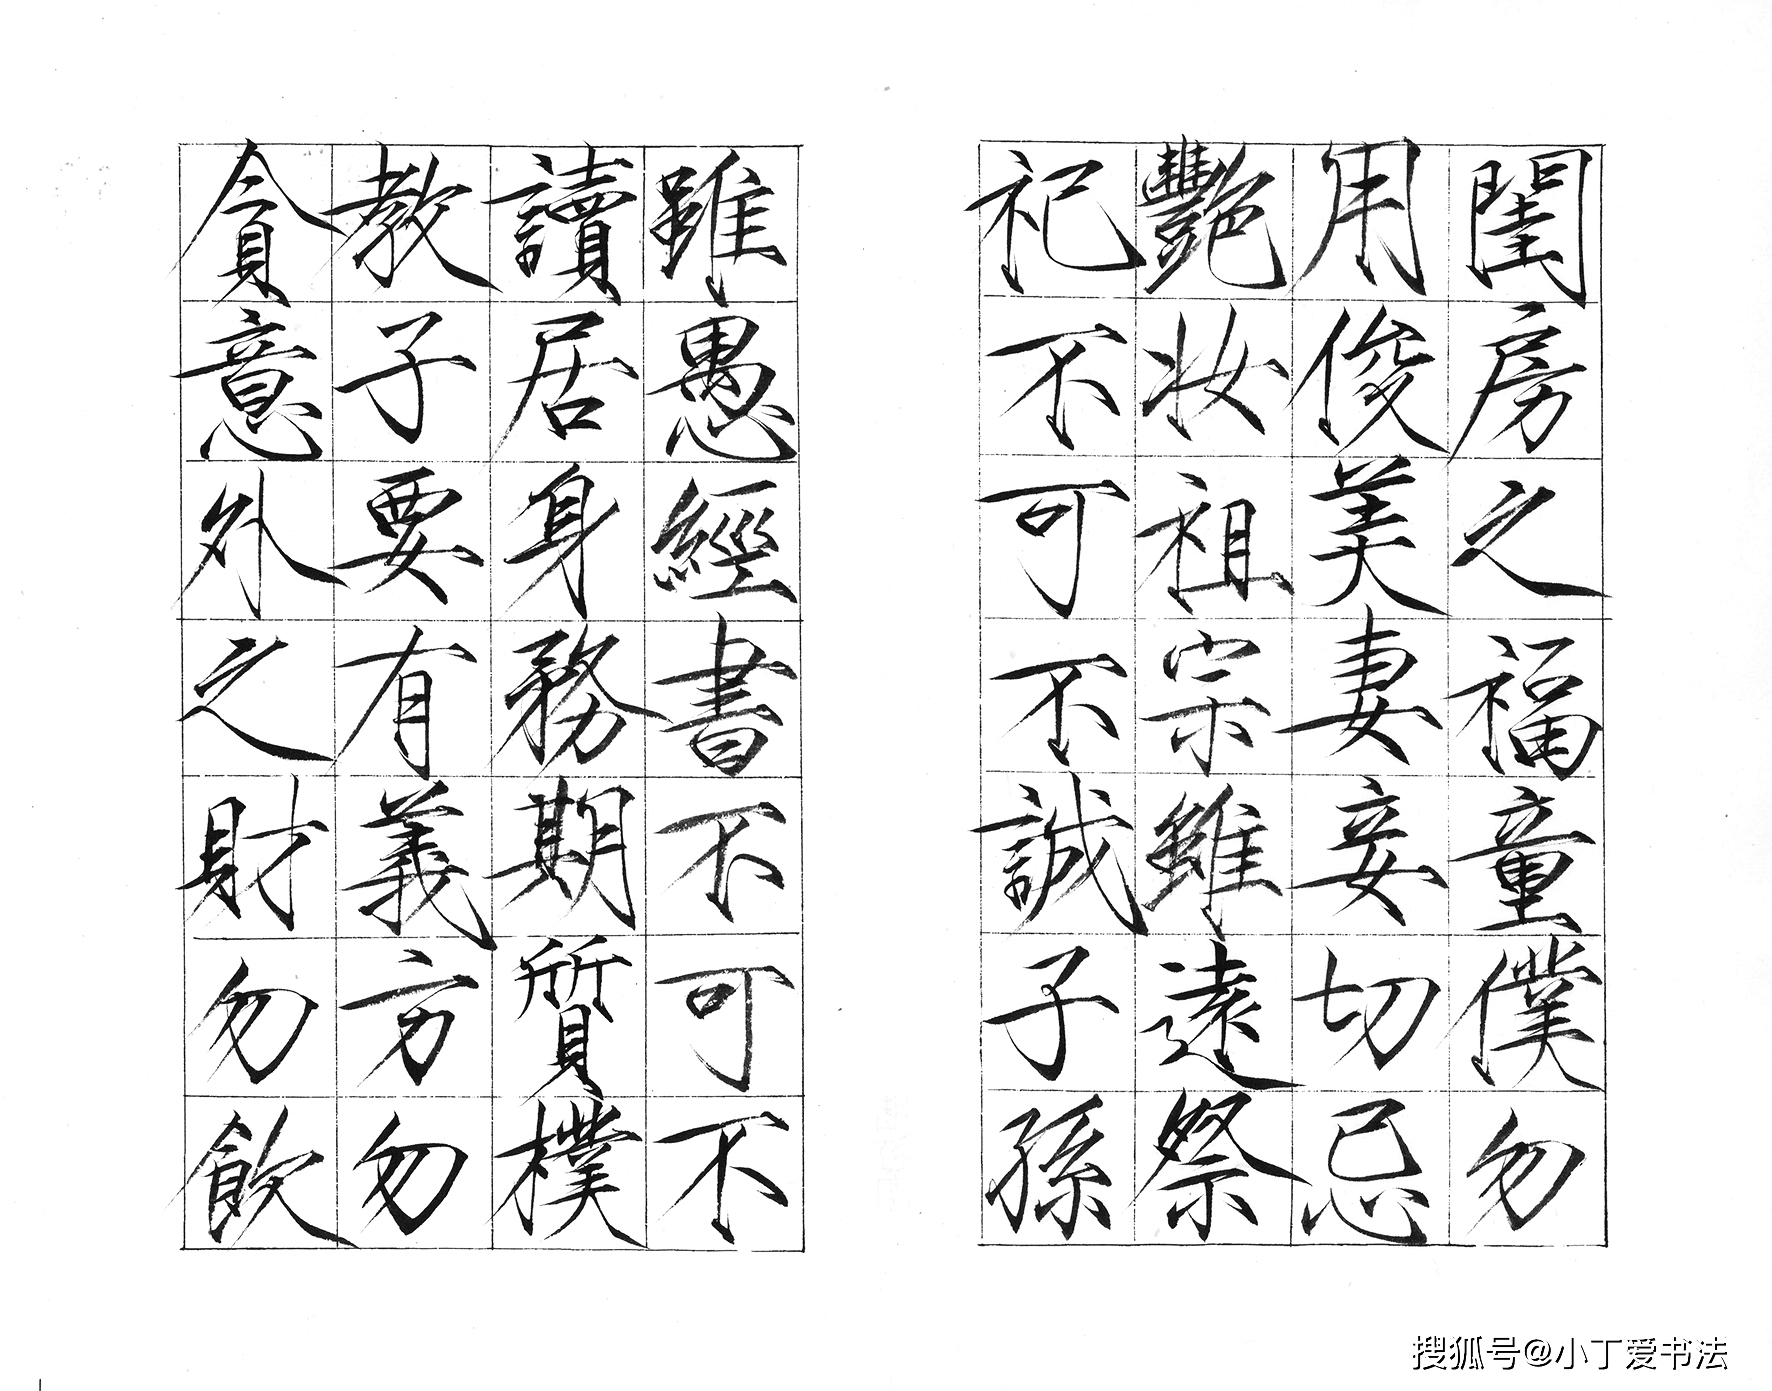 閨房之福童僕勿
用俊美妻妾切忌
艷妆祖宗雖遠祭
祀不可不誠子孫
雖愚經書不可不
讀居身務期質樸
教子要有義方勿
貪意外之財勿飲
搜狐号@小丁爱书法